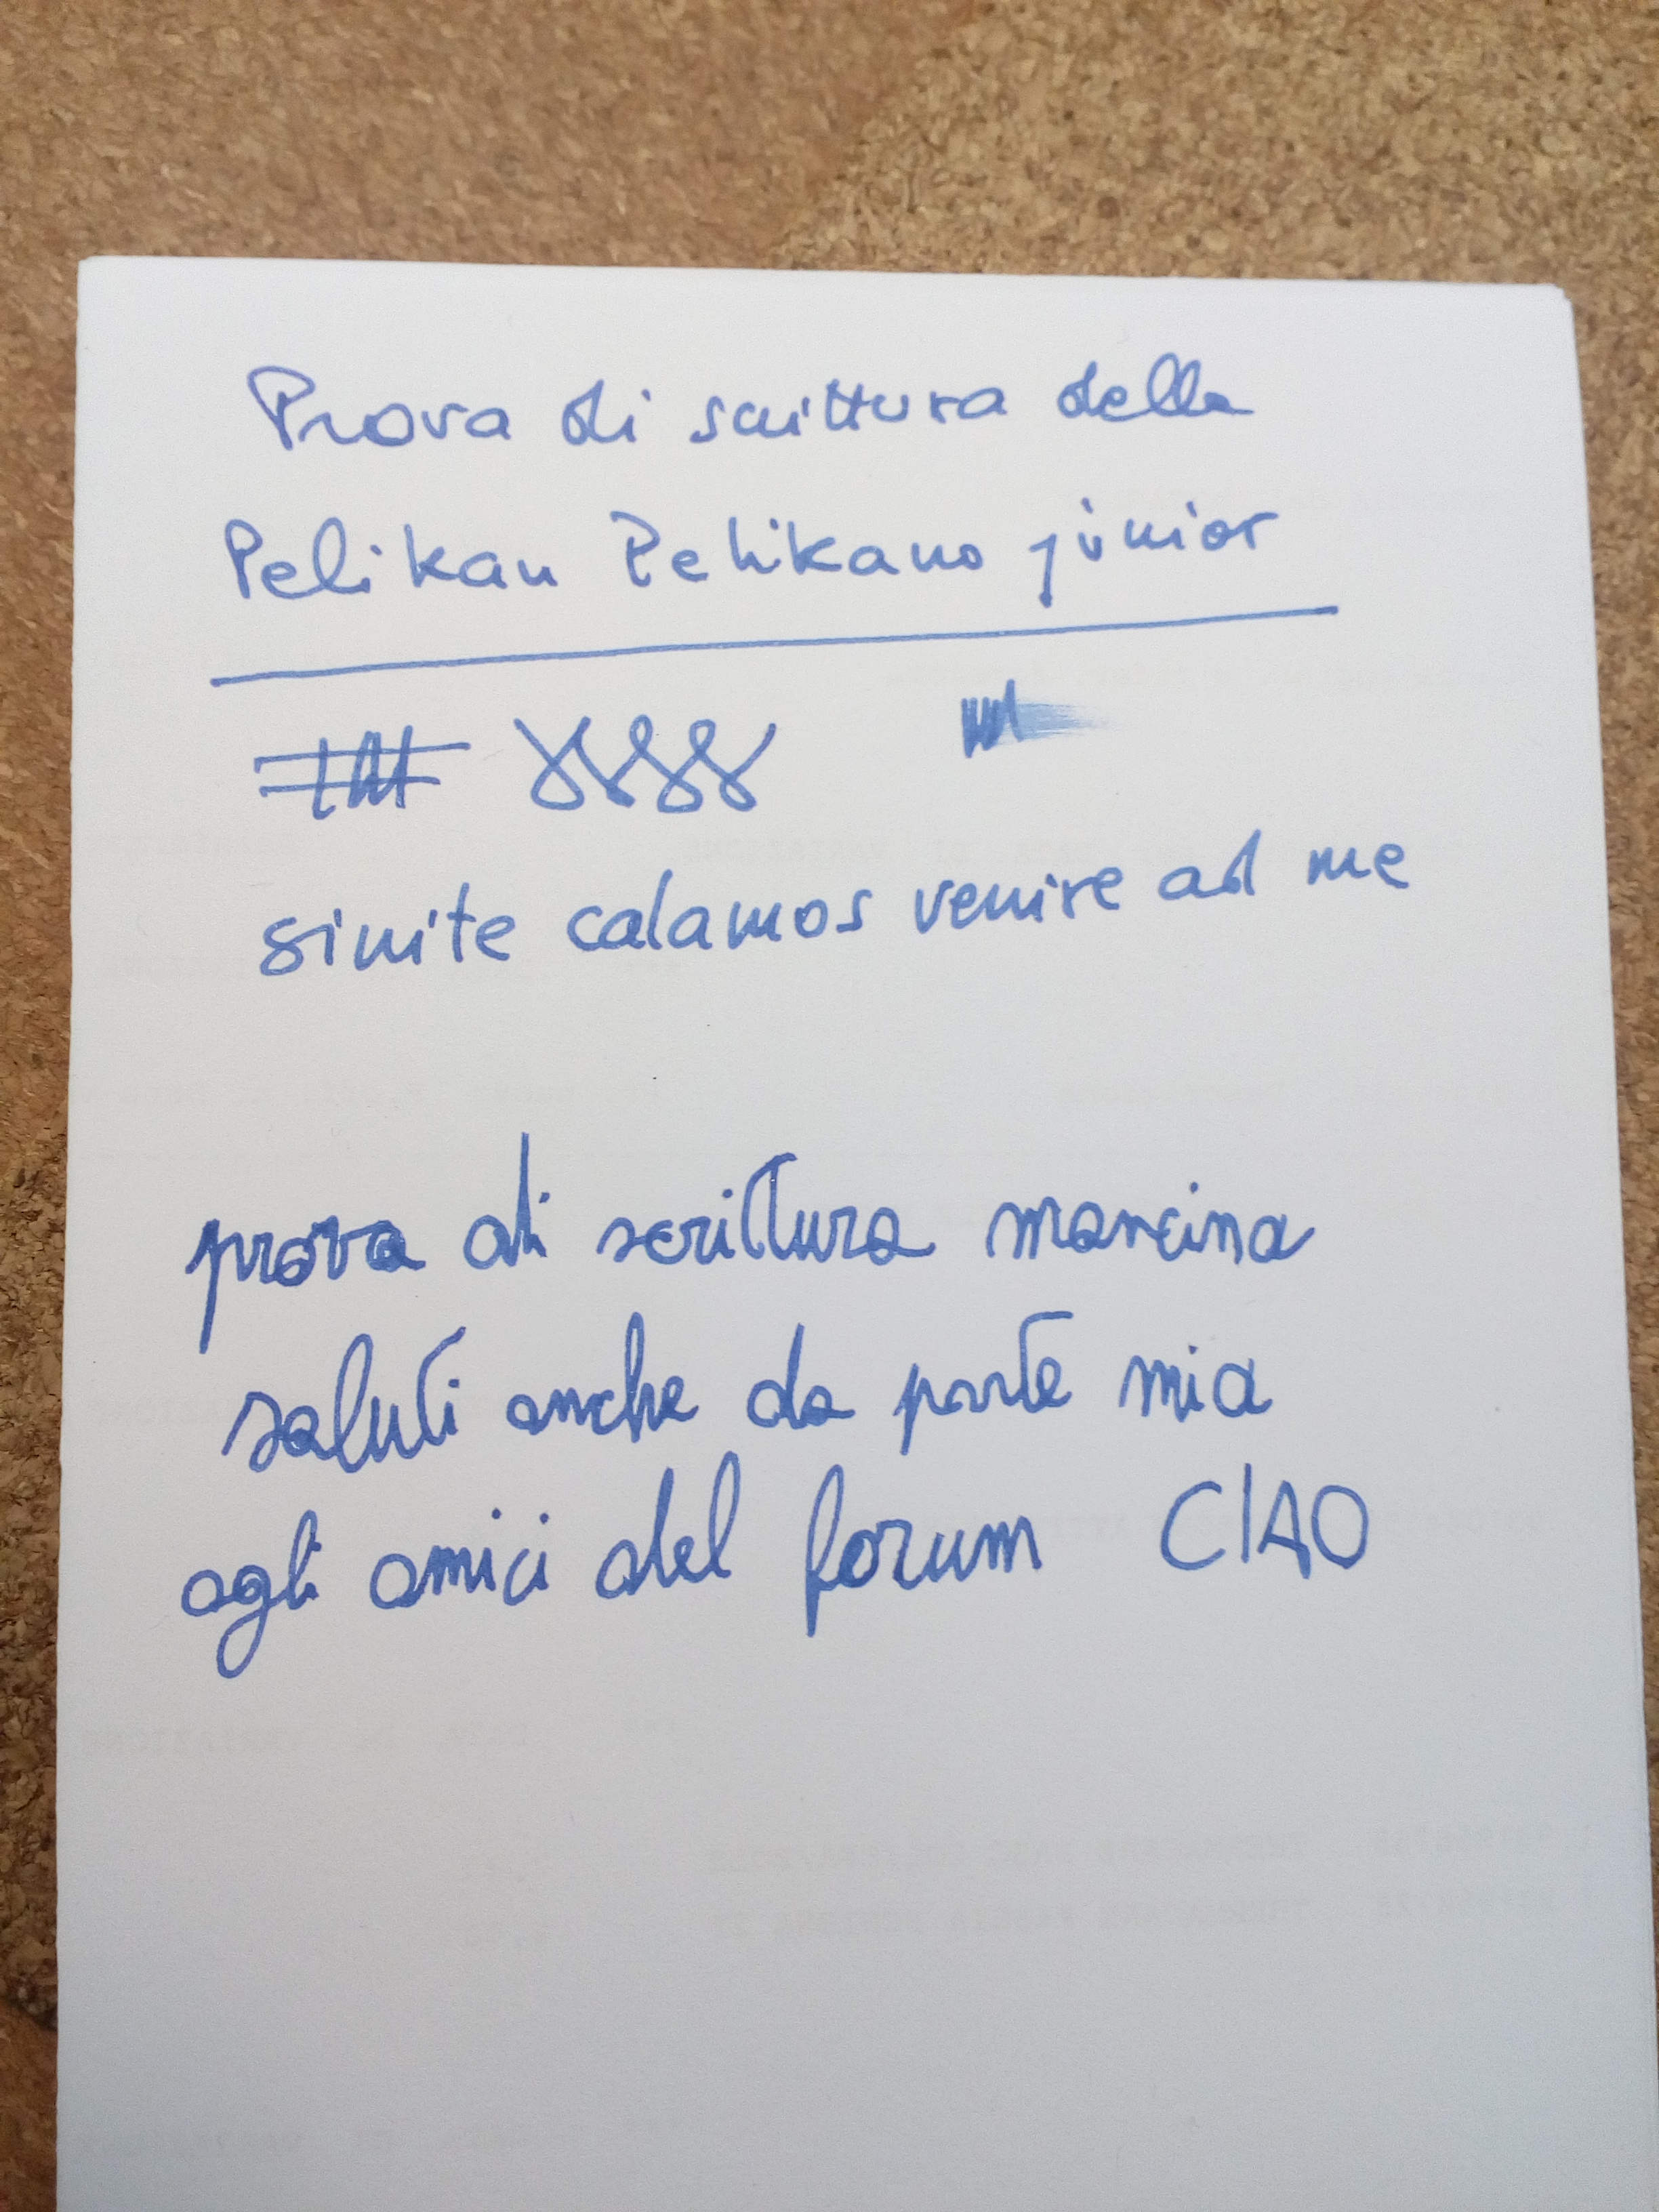 Prova di scrittura della
Pelikan Pelikano junior
sinite calamos venire ad me
prova di scrittura mancina
saluti anche da parte mia
agli amici del forum CIAO